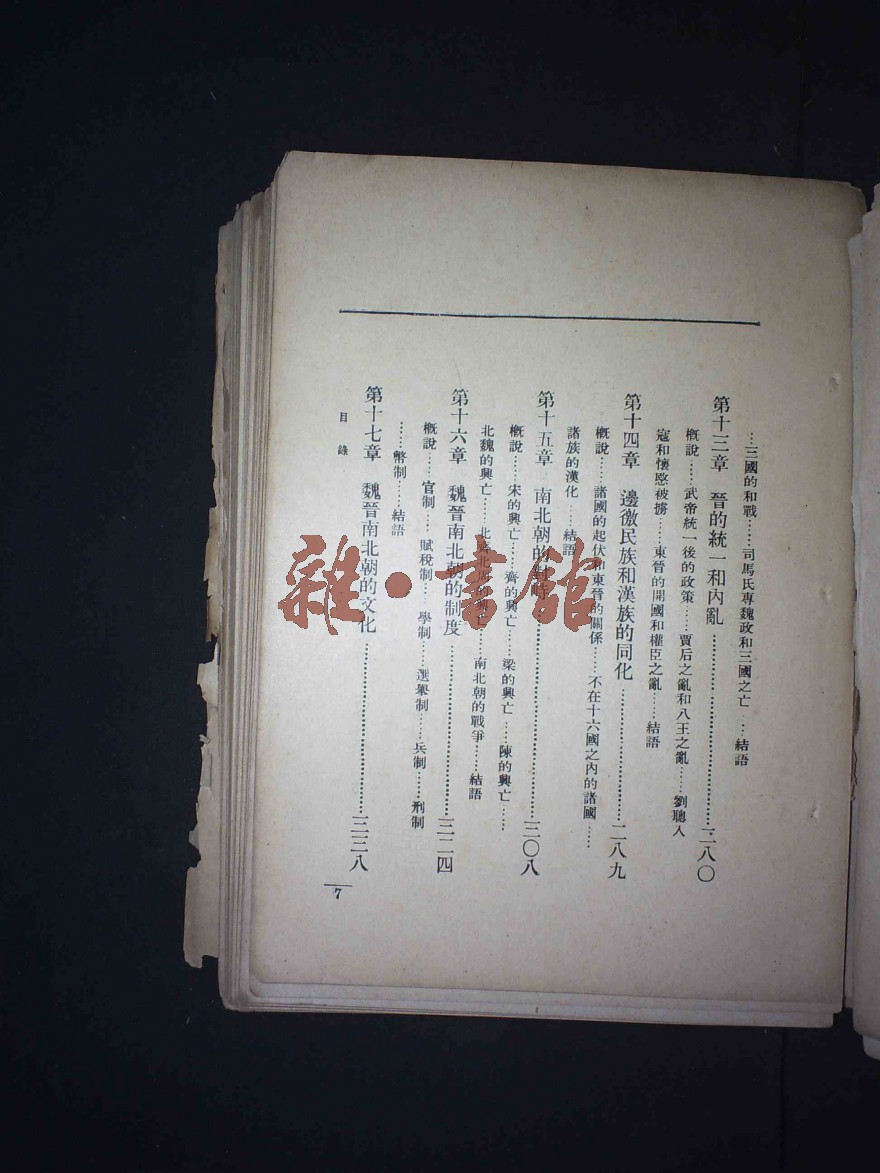 ……三國的和戰……司馬氏專魏政和三國之亡……結語
第十三章　晉的統一和內亂……二八〇
概說……武帝統一後的政策……賈后之亂和八王之亂……劉聰入
寇和懷愍被擄……東晉的開國和權臣之亂……結語
第十四章　邊徼民族和漢族的同化……二八九
概說……諸國的起伏和東晉的關係……不在十六國之內的諸國……
諸族的漢化……結語
第十五章　南北朝的對峙……三〇八
概說……宋的興亡……齊的興亡……梁的興亡……陳的興亡……
北魏的興亡……北齊北周的興亡……南北朝的戰爭……結語
第十六章　魏晉南北朝的制度……三二四
概說……官制……賦稅制……學制……選舉制……兵制……刑制
……幣制……結語
第十七章　魏晉南北朝的文化……三三八
目錄
7
雜·書館